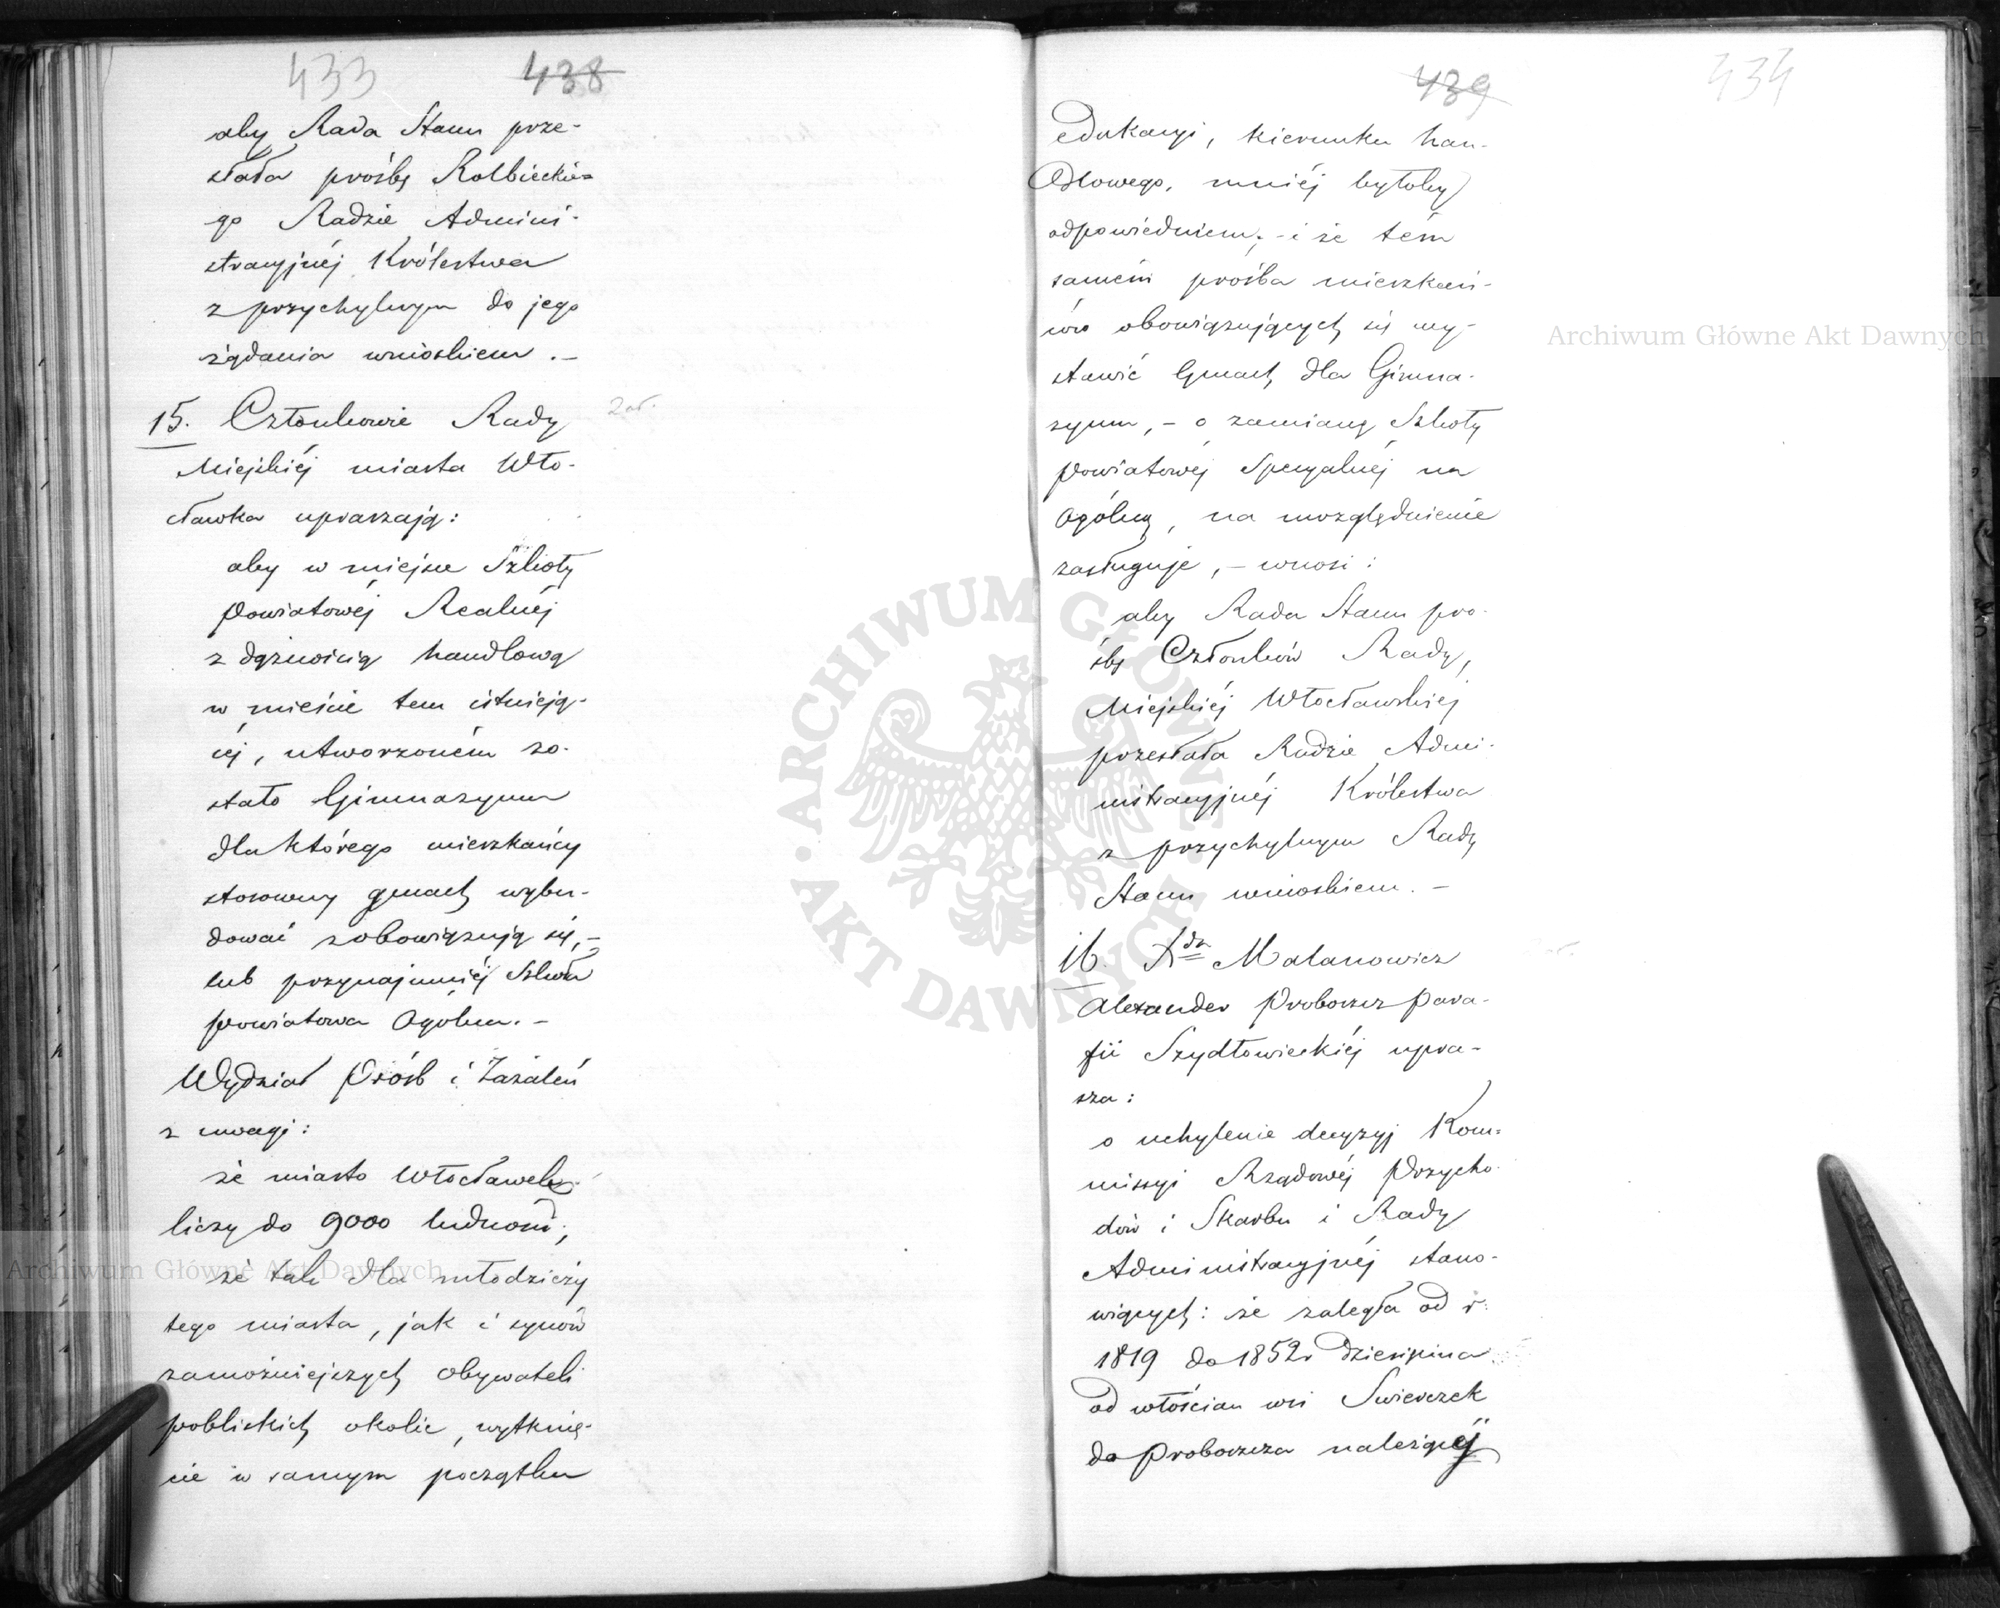 433 438
aby Rada Stanu prze-
słała prośbę Kolbieckie=
go Radzie Admini-
stracyjnéj Królestwa
z przychylnym do jego
żądania wnioskiem. –
15. Członkowie Rady
Miejskiéj miasta Wło-
cławka upraszają:
aby w miejsce Szkoły
Powiatowéj Realnéj
z dążnością handlową
w mieście tem istnieją-
céj, utworzoném zo-
stało Gimnazyum
dla którego mieszkańcy
stosowny gmach wybu-
dować zobowiązują się, –
lub przynajmniéj Szkoła
Powiatowa Ogólna. –
Wydział Próśb i Zażaleń
z uwagi:
że miasto Włocławek
liczy do 9000 ludności;
że tak dla młodzieży
tego miasta, jak i synów
zamożniejszych obywateli
pobliskich okolic, wytknię-
cie w samym początku
439 434
edukacyi, kierunku han-
dlowego, mniéj byłoby
odpowiedniem; – i że tém
samém prośba mieszkań-
ców obowiązujących się wy-
stawić Gmach dla Gimna-
zyum, – o zamianę Szkoły
Powiatowéj Specyalnéj na
Ogólną, na uwzględnienie
zasługuje, – wnosi:
aby Rada Stanu pro-
śbę Członków Rady
Miejskiéj Włocławskiej
przesłała Radzie Admi-
nistracyjnéj Królestwa
z przychylnym Rady
Stanu wnioskiem. –
16. Xdz Malanowicz
Alexander Proboszcz para-
fii Szydłowieckiéj upra-
sza:
o uchylenie decyzyj Kom=
missyi Rządowéj Przycho-
dów i Skarbu i Rady
Administracyjnéj stano-
wiących: że zaległa od r.
1819 do 1852 r dziesięcina
od włościan wsi Swierczek
do Proboszcza należącéj
Archiwum Główne Akt Dawnych
Archiwum Główne Akt Dawnych
ARCHIWUM GŁÓWNE AKT DAWNYCH